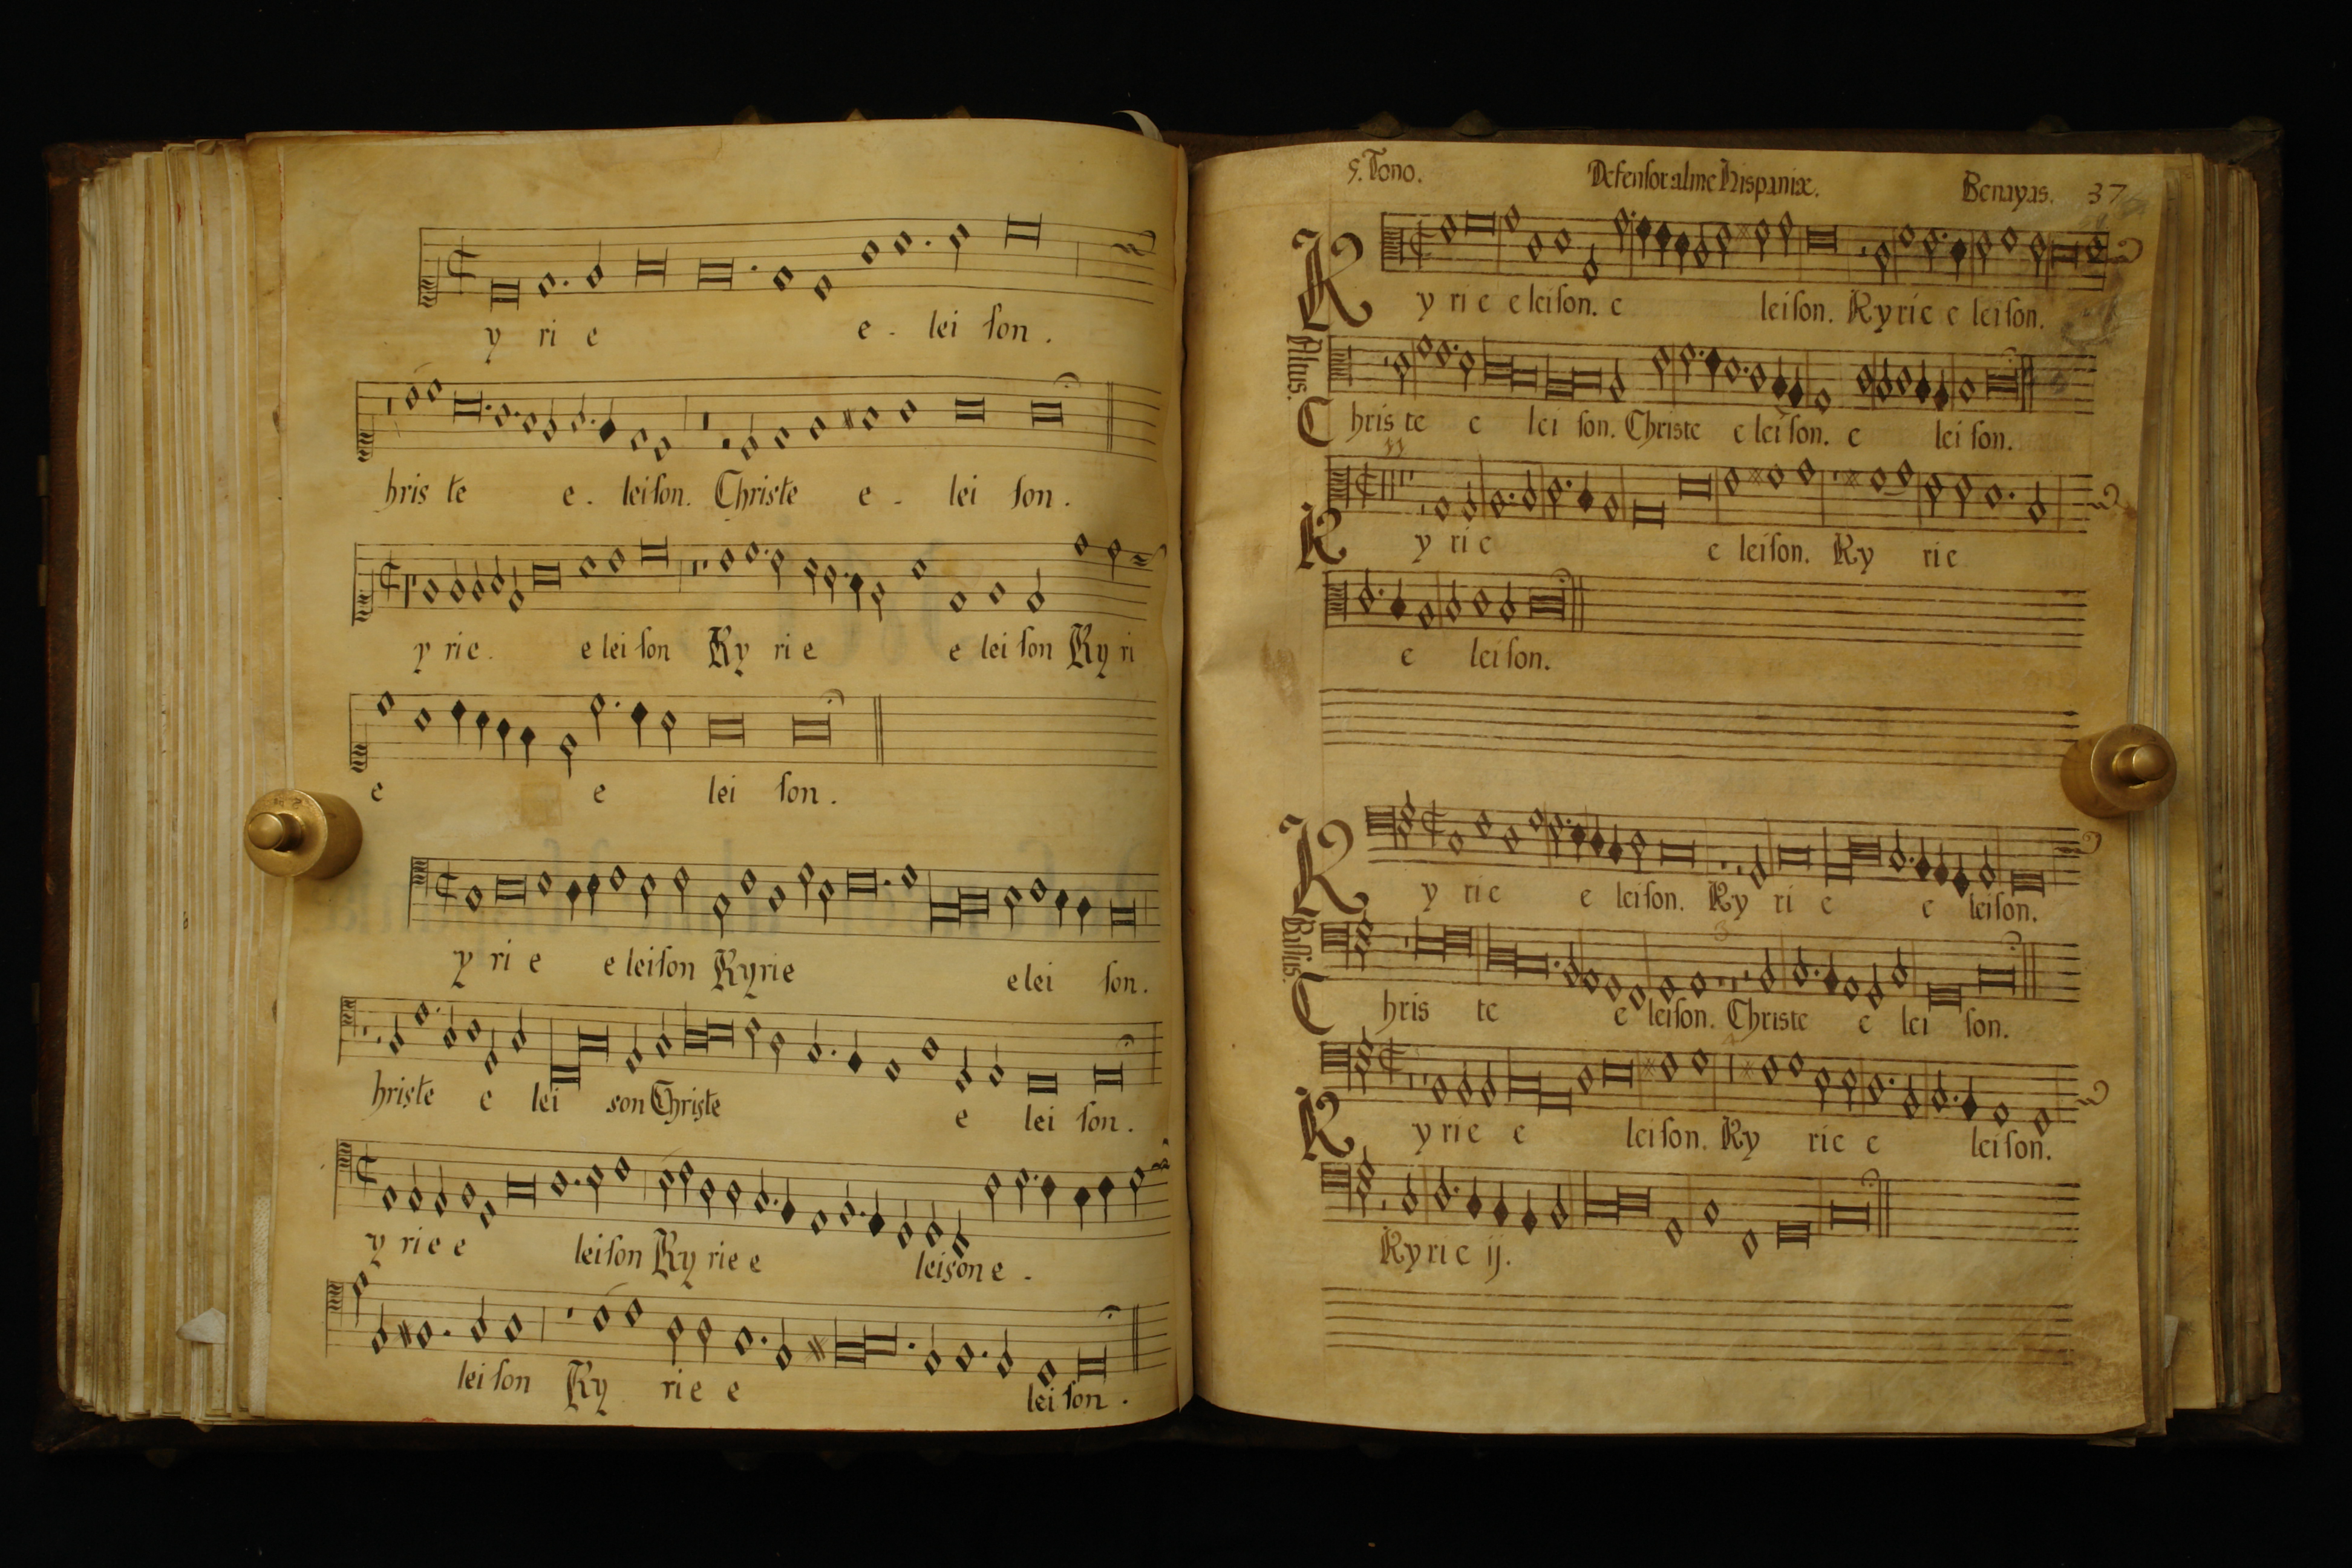 y ri e e - lei son .
hris te e . leison. Christe e - lei son .
y rie . e lei son Ky ri e e lei son Ky ri
e e lei son .
y ri e e leison Kyrie e lei son .
hriste e lei son Christe e lei son .
y ri e e leison Ky rie e leison e .
lei son Ky ri e e lei son .
5. Tono. Defensor alme hispaniæ. Benayas. 37
K y ri e e leison. e leison. Kyrie e leison.
Altus.
C hris te e lei son. Christe e leison. e lei son.
K y ri e e leison. Ky rie
e leison.
K y rie e leison. Ky ri e e leison.
Bassus.
C hris te e leison. Christe e lei son.
K y rie e leison. Ky rie e leison.
Kyrie ij.